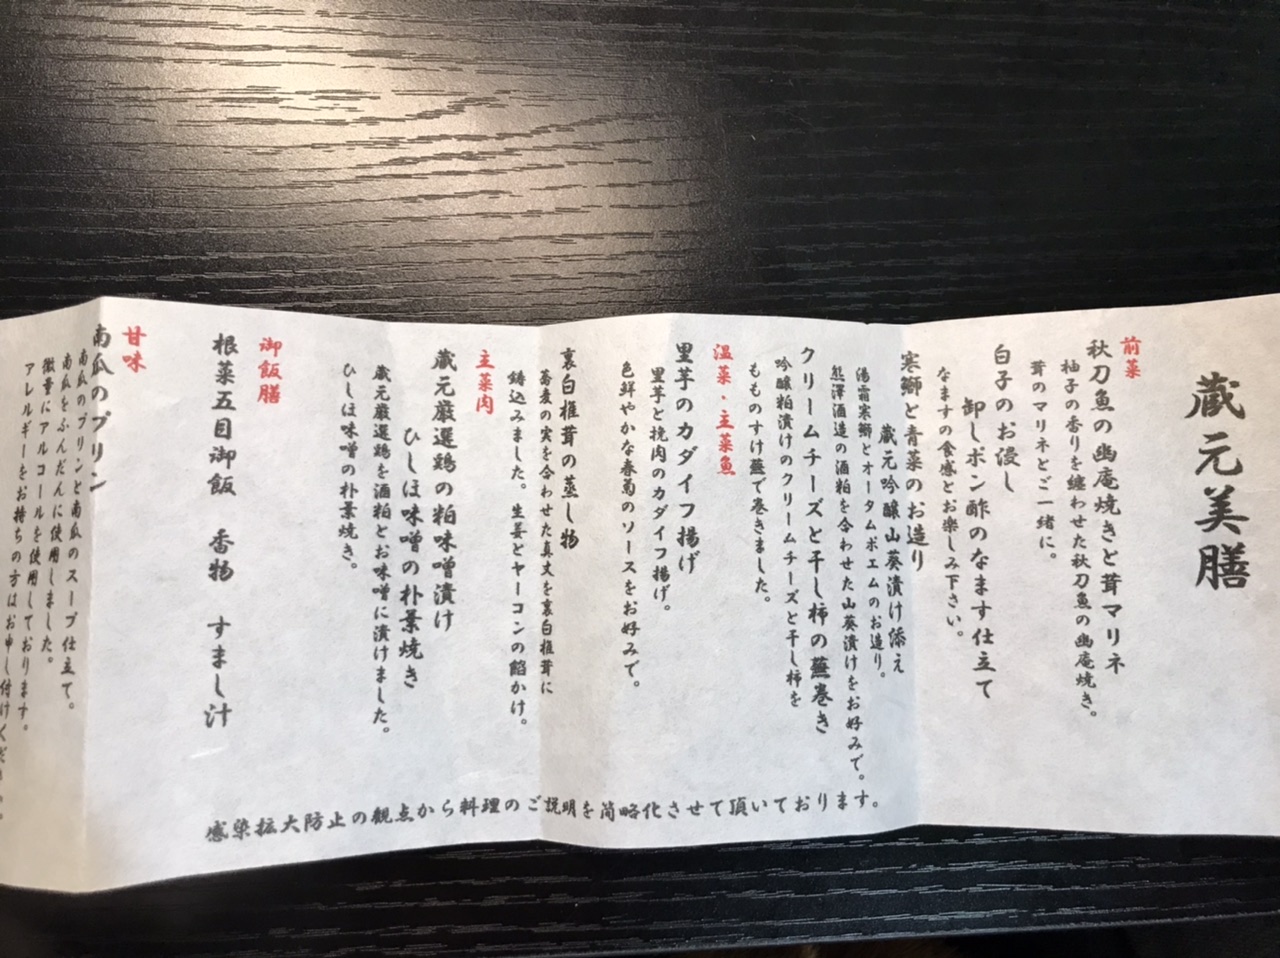 蔵元美膳
前菜
秋刀魚の幽庵焼きと茸マリネ
柚子の香りを纏わせた秋刀魚の幽庵焼き。
茸のマリネとご一緒に。
白子のお浸し
卸しポン酢のなます仕立て
なますの食感とお楽しみ下さい。
寒鰤と青菜のお造り
蔵元吟醸山葵漬け添え
湯霜寒鰤とオータムポエムのお造り。
熊澤酒造の酒粕を合わせた山葵漬けをお好みで。
クリームチーズと干し柿の蕪巻き
吟醸粕漬けのクリームチーズと干し柿を
もものすけ蕪で巻きました。
温菜・主菜魚
里芋のカダイフ揚げ
里芋と挽肉のカダイフ揚げ。
色鮮やかな春菊のソースをお好みで。
裏白椎茸の蒸し物
蕎麦の実を合わせた真丈を裏白椎茸に
鋳込みました。生姜とヤーコンの餡かけ。
主菜肉
蔵元厳選鶏の粕味噌漬け
ひしほ味噌の朴葉焼き
蔵元厳選鶏を酒粕とお味噌に漬けました。
ひしほ味噌の朴葉焼き。
御飯膳
根菜五目御飯 香物 すまし汁
甘味
南瓜のプリン
南瓜のプリンと南瓜のスープ仕立て。
南瓜をふんだんに使用しました。
微量にアルコールを使用しております。
アレルギーをお持ちの方はお申し付けください。
感染拡大防止の観点から料理のご説明を簡略化させて頂いております。